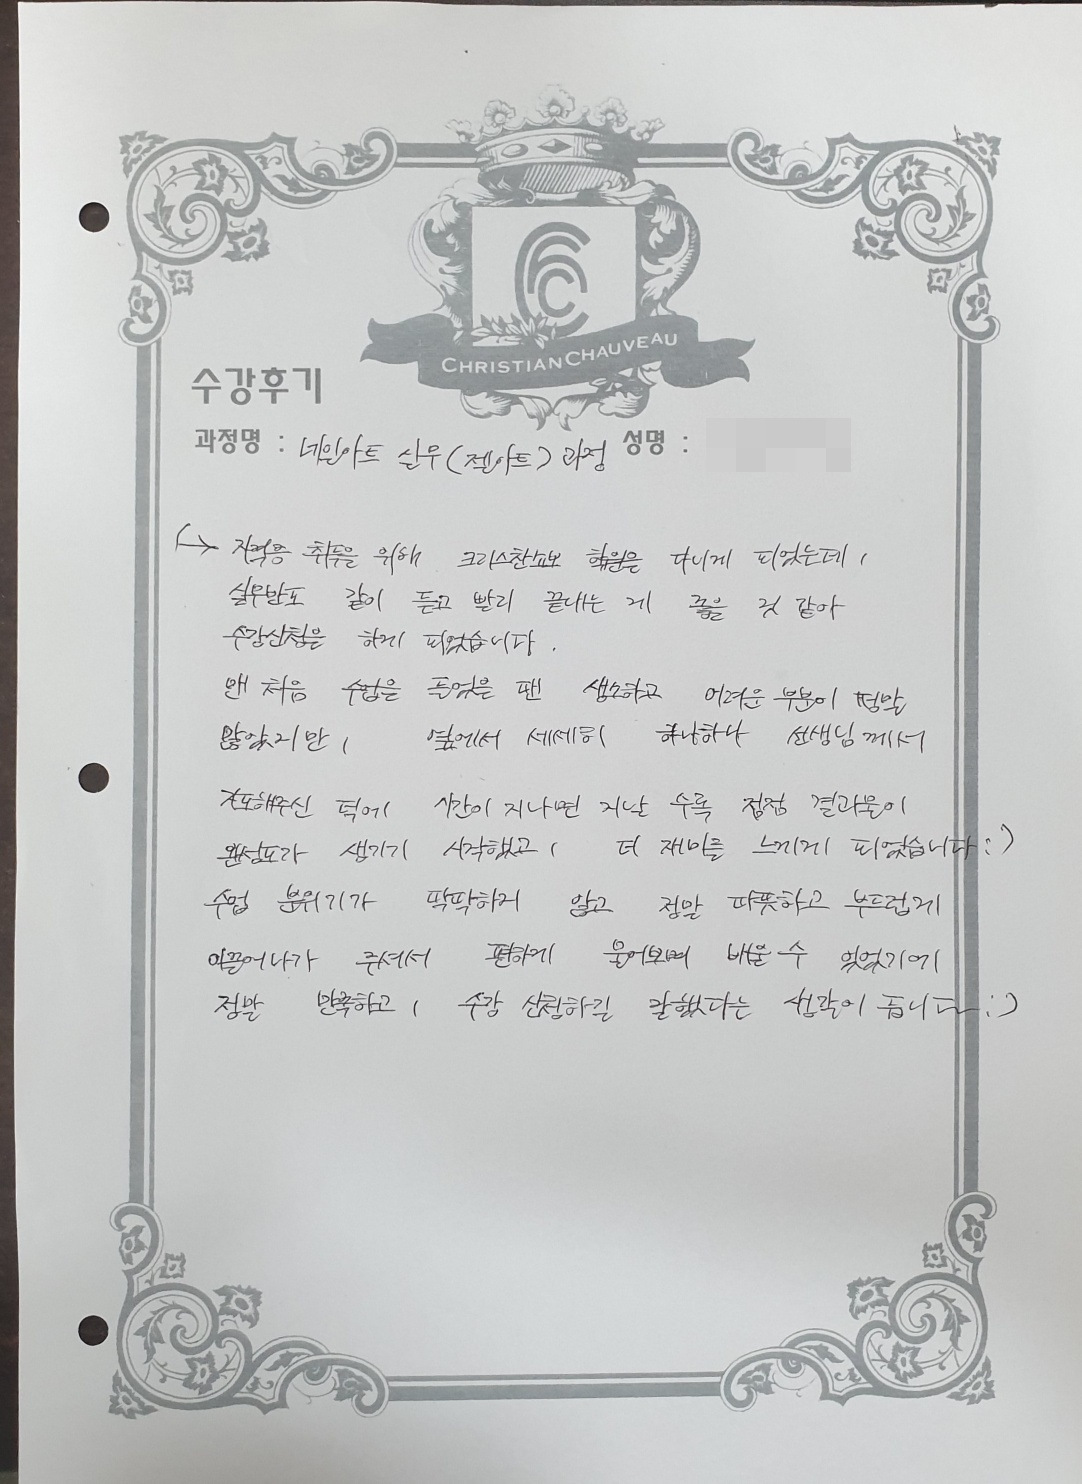 CHRISTIAN CHAUVEAU
수강후기
과정명 : 네일아트 실무(젤아트) 과정 성명 :
→ 자격증 취득을 위해 크리스찬쇼보 학원을 다니게 되었는데,
실무반도 같이 듣고 빨리 끝내는 게 좋을 것 같아
수강신청을 하게 되었습니다.
맨 처음 수업을 들었을 땐 생소하고 어려운 부분이 정말
많았지만, 옆에서 세세히 하나하나 선생님께서
지도해주신 덕에 시간이 지나면 지날 수록 점점 결과물이
완성도가 생기기 시작했고, 더 재미를 느끼게 되었습니다 :)
수업 분위기가 딱딱하지 않고 정말 따뜻하고 부드럽게
이끌어나가 주셔서 편하게 물어보며 배울 수 있었기에
정말 만족하고, 수강 신청하길 잘했다는 생각이 듭니다 :)